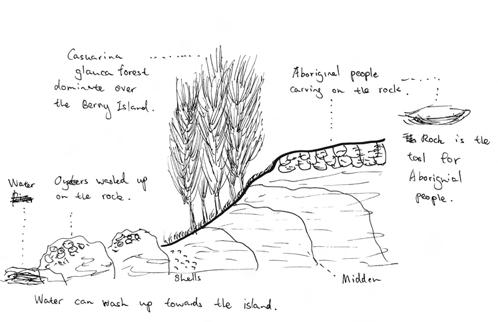 Casuarina
glauca forest
dominate over
the Berry Island.
Aboriginal people
carving on the rock.
Rock is the
tool for
Aboriginial
people.
Water
Oysters washed up
on the rock.
Shells
Midden
Water can wash up towards the island.